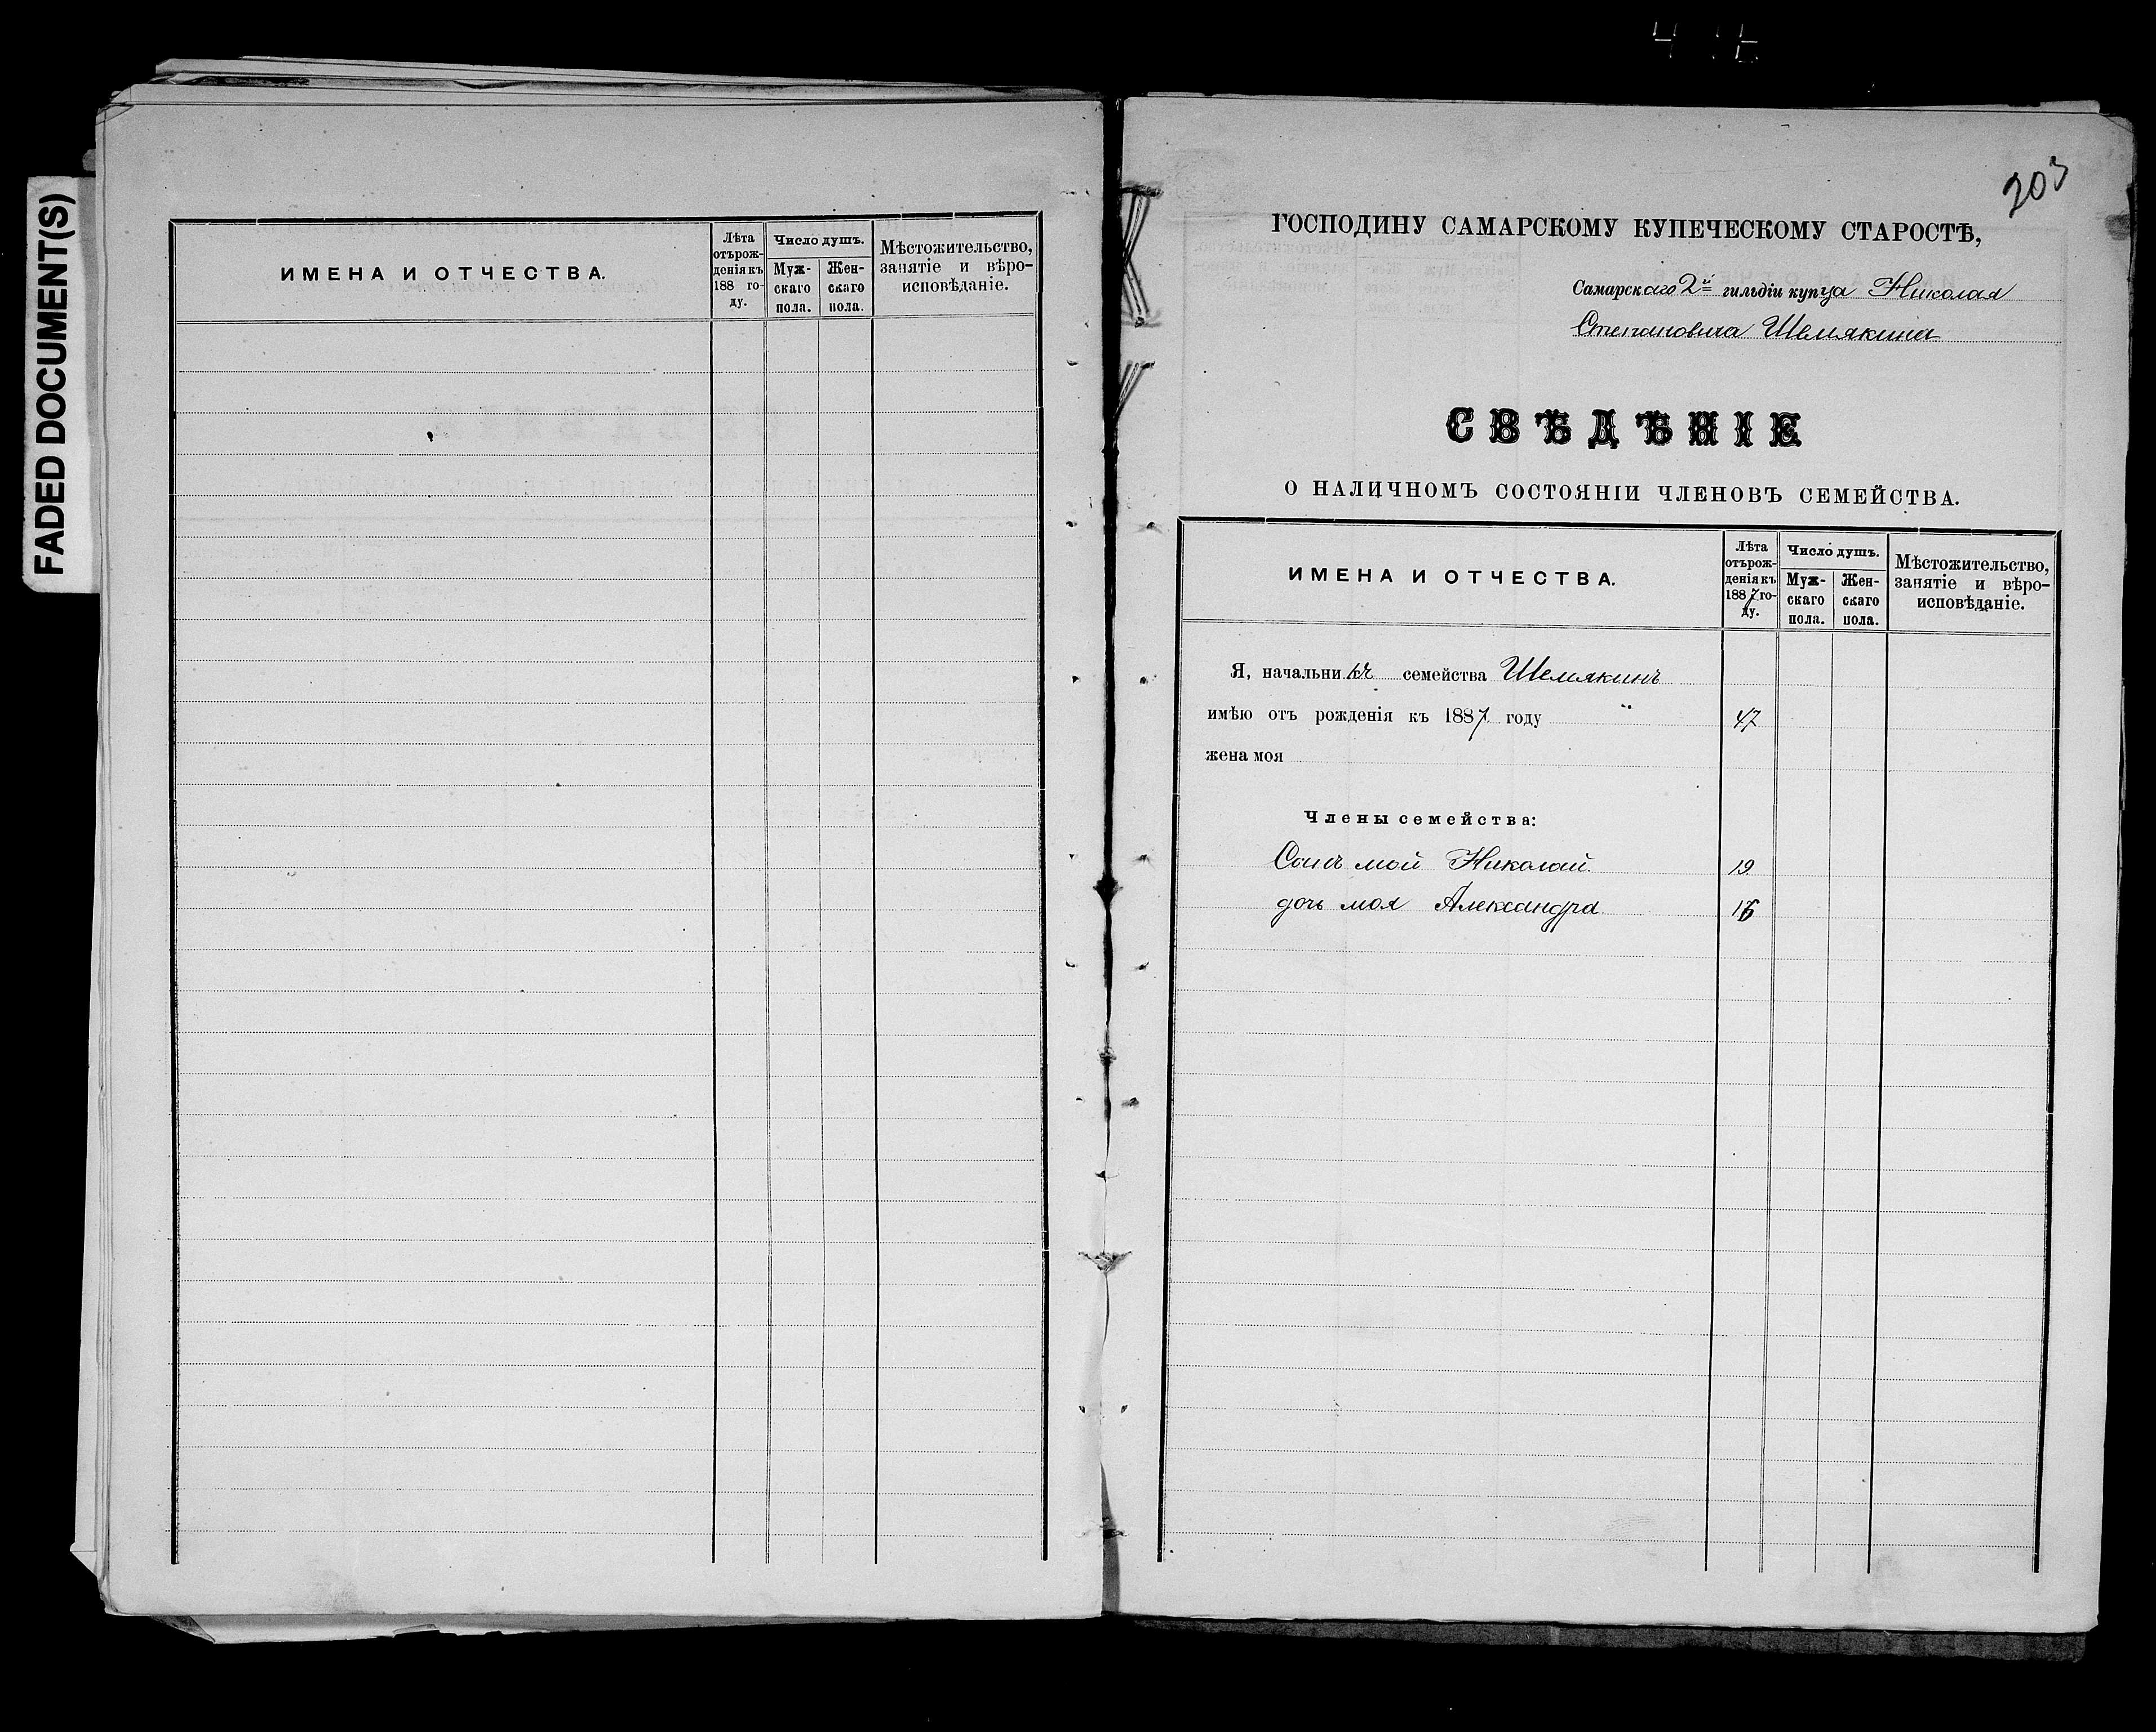 FADED DOCUMENT(S)
ИМЕНА И ОТЧЕСТВА.
Лѣта отърож-
денія къ
188 го-
ду.
Число душъ.
Муж-
скаго
пола.
Жен-
скаго
пола.
Мѣстожительство,
занятіе и вѣро-
исповѣданіе.
203
ГОСПОДИНУ САМАРСКОМУ КУПЕЧЕСКОМУ СТАРОСТѢ,
Самарскаго 2й гильдіи купца Николая
Степановича Шемякина
СВѢДѢНІЕ
О НАЛИЧНОМЪ СОСТОЯНІИ ЧЛЕНОВЪ СЕМЕЙСТВА.
ИМЕНА И ОТЧЕСТВА.
Лѣта
отърож-
денія къ
1887 го-
ду.
Число душъ.
Муж-
скаго
пола.
Жен-
скаго
пола.
Мѣстожительство,
занятіе и вѣро-
исповѣданіе.
Я, начальникъ семейства Шемякинъ
имѣю отъ рожденія къ 1887 году 47
жена моя
Члены семейства:
Сынъ мой Николай. 19
дочь моя Александра. 16